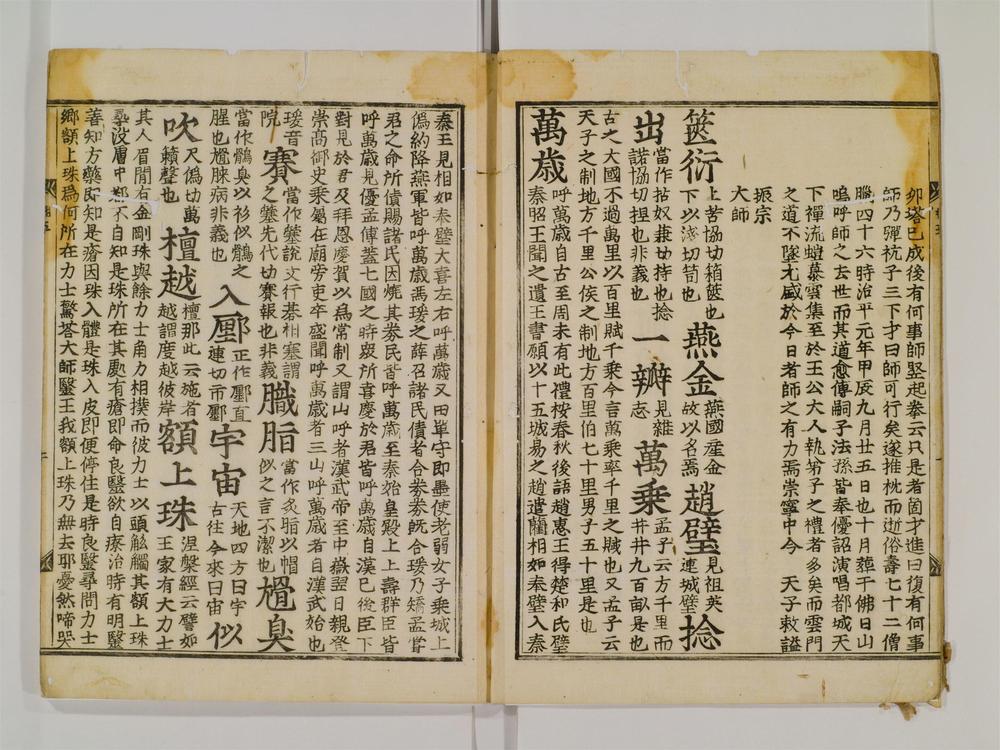 卵塔已成後有何事師竪起拳云只是者箇才進曰復有何事
師乃彈枕子三下才曰師可行矣遂推枕而逝俗壽七十二僧
臘四十六時治平元年甲辰九月廿五日也十月葬干佛日山
嗚呼師之去世而其道愈傳嗣子法孫皆奉優詔演唱都城天
下禪流螘慕雲集至於王公大人執弟子之禮者多矣而雲門
之道不墜尤盛於今日者師之有力焉崇寧中今 天子敕謚
振宗
大師
篋衍 上苦協切箱篋也下以淺切笥也 燕金 燕國產金故以名焉 趙璧 見祖英連城璧 捻
出 當作拈奴兼切持也捻諾協切捏也非義也 一瓣 見雜志 萬乘 孟子云方千里而井井九百畝是也
古之大國不過萬里以百里賦千乘今言萬乘率千里之賦也又孟子云
天子之制地方千里公侯之制地方百里伯七十里男子五十里是也
萬歲 呼萬歲自古至周未有此禮桉春秋後語趙惠王得楚和氏璧
秦昭王聞之遺王書願以十五城易之趙遣藺相如奉璧入秦
秦王見相如奉璧大喜左右呼萬歲又田單守即墨使老弱女子乘城上
僞約降燕軍皆呼萬歲馮瑗之薛召諸民債者合券券既合瑗乃矯孟嘗
君之命所債賜諸民因燒其券民皆呼萬歲至秦始皇殿上上壽群臣皆
呼萬歲見優孟傳蓋七國之時衆所喜慶於君皆呼萬歲自漢已後臣下
對見於君及拜恩慶賀以爲常制又謂山呼者漢武帝至中嶽翌日親登
崇高御史乘屬在廟旁吏卒盛聞呼萬歲者三山呼萬歲者自漢武始也
瑗音院 賽 當作簺說文行棊相塞謂之簺先代切賽報也非義 膱脂 當作炙脂以帽似之言不潔也 尵臭
當作鶻臭以衫似鶻之腥也尵脒病非義也 入㕓 正作㕓直連切市㕓 宇宙 天地四方曰宇古往今來曰宙 似
吹 尺僞切萬籟聲也 檀越 檀那此云施者越謂度越彼岸 額上珠 涅槃經云譬如王家有大力士
其人眉間有金剛珠與餘力士角力相撲而彼力士以頭觝觸其額上珠
尋沒膚中都不自知是珠所在其處有瘡即命良毉欲自療治時有明毉
善知方藥即知是瘡因珠入體是珠入皮即便停住是時良毉尋問力士
卿額上珠爲何所在力士驚荅大師毉王我額上珠乃無去邪憂愁啼哭